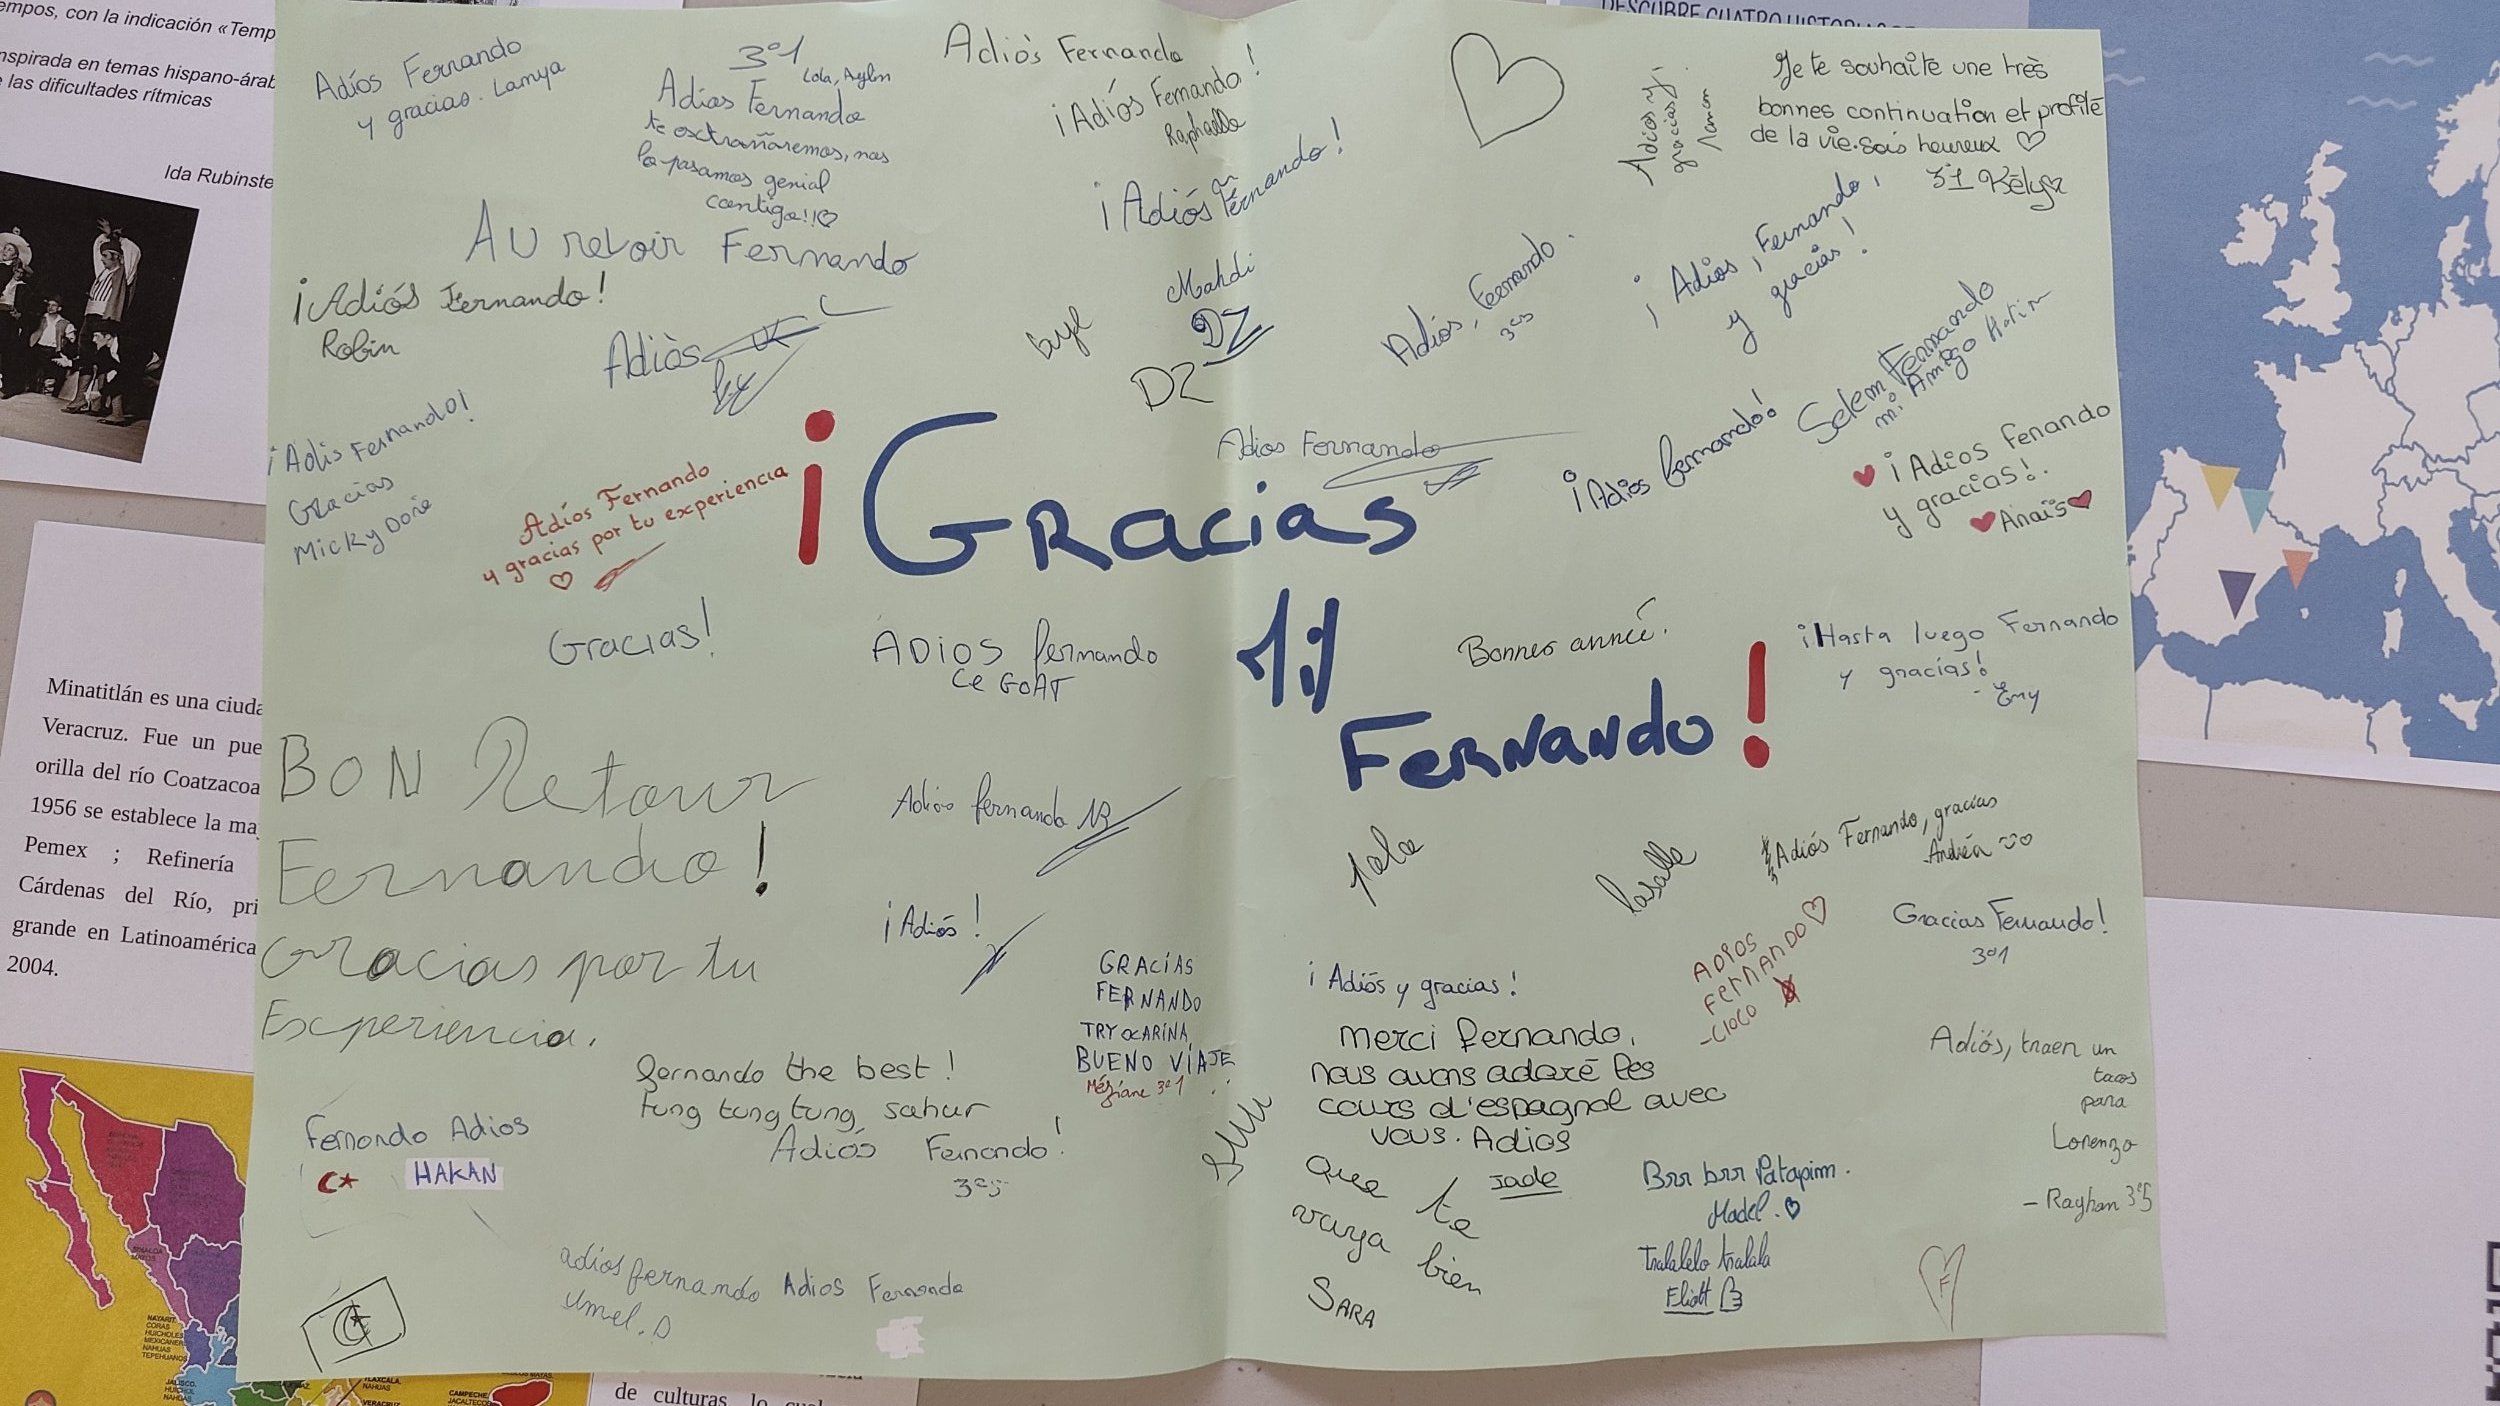 empos, con la indicación «Temp
nspirada en temas hispano-árab
las dificultades rítmicas
Ida Rubinste
DESCUBRE CUATRO HISTORIAS
Adíos Fernando
y gracias. Lamya
3º1
Lola, Aylin
Adios Fernando
te exctrañaremos, nos
lo pasamos genial
contigo!!♡
Adiòs Fernando
¡Adíós Fernando!
Raphaelle
¡Adiós Fernando!
Adios y
gracias
Je te souhaite une très
bonnes continuation et profite
de la vie. sois heureux ♡
31 Kély
AU revoir Fernando
¡Adiós Fernando!
Robin
Adiòs
Mahdi
DZ
DZ
Adiós, Fernando.
3º5
¡Adios, Fernando,
y gracias!
Selem Fernando
mi Amigo Hatim
¡Adis Fernando!
Gracias
Micky Doñe
Adíos Fernando
y gracias por tu experiencia
Adios Fernando
¡Adios fernando!
¡Adios Fenando
y gracias!.
Anaïs
¡Gracias
Fernando!
Gracias!
ADIOS fernando
Le GOAT
Bonnes année.
¡Hasta luego Fernando
y gracias!
- Emy
Minatitlán es una ciuda
Veracruz. Fue un pue
orilla del río Coatzacoa
1956 se establece la ma
Pemex ; Refinería
Cárdenas del Río, pri
grande en Latinoamérica
2004.
BON Retour
Fernando!
Gracias por tu
Experiencia.
Adios fernando
¡Adiós!
lasalle
Adiós Fernando, gracias
Andréa
Gracias Fernando!
3º1
ADIOS
FERNANDO♡
-CLOCO
GRACÍAS
FERNANDO
TRY OCARINA
BUENO VÍAJE
Méziane 3º1
¡Adiós y gracias!
merci fernando,
nous avons adoré les
cours d'espagnol avec
vous. Adios
Jade
Adiós, traen un
tacos
para
Lorenzo
- Rayhan 3º5
fernando the best!
tung tung tung sahur
Adiós Fernando!
3º5
Fernando Adios
HAKAN
Que te
vaya bien
SARA
Brr brr Patapim.
Madel. ♡
Tralalelo tralala
Eliott
adios fernando Adios Fernando
Umel. D
F
SINALOA
MAYOS
NAYARIT
CORAS
HUICHOLES
MEXICANEROS
NAHUAS
TEPEHUANOS
JALISCO
HUICHOL
NAHUAS
TLAXCALA.
NAHUAS
VERACRUZ
CAMPECHE
JACALTECOS
de culturas